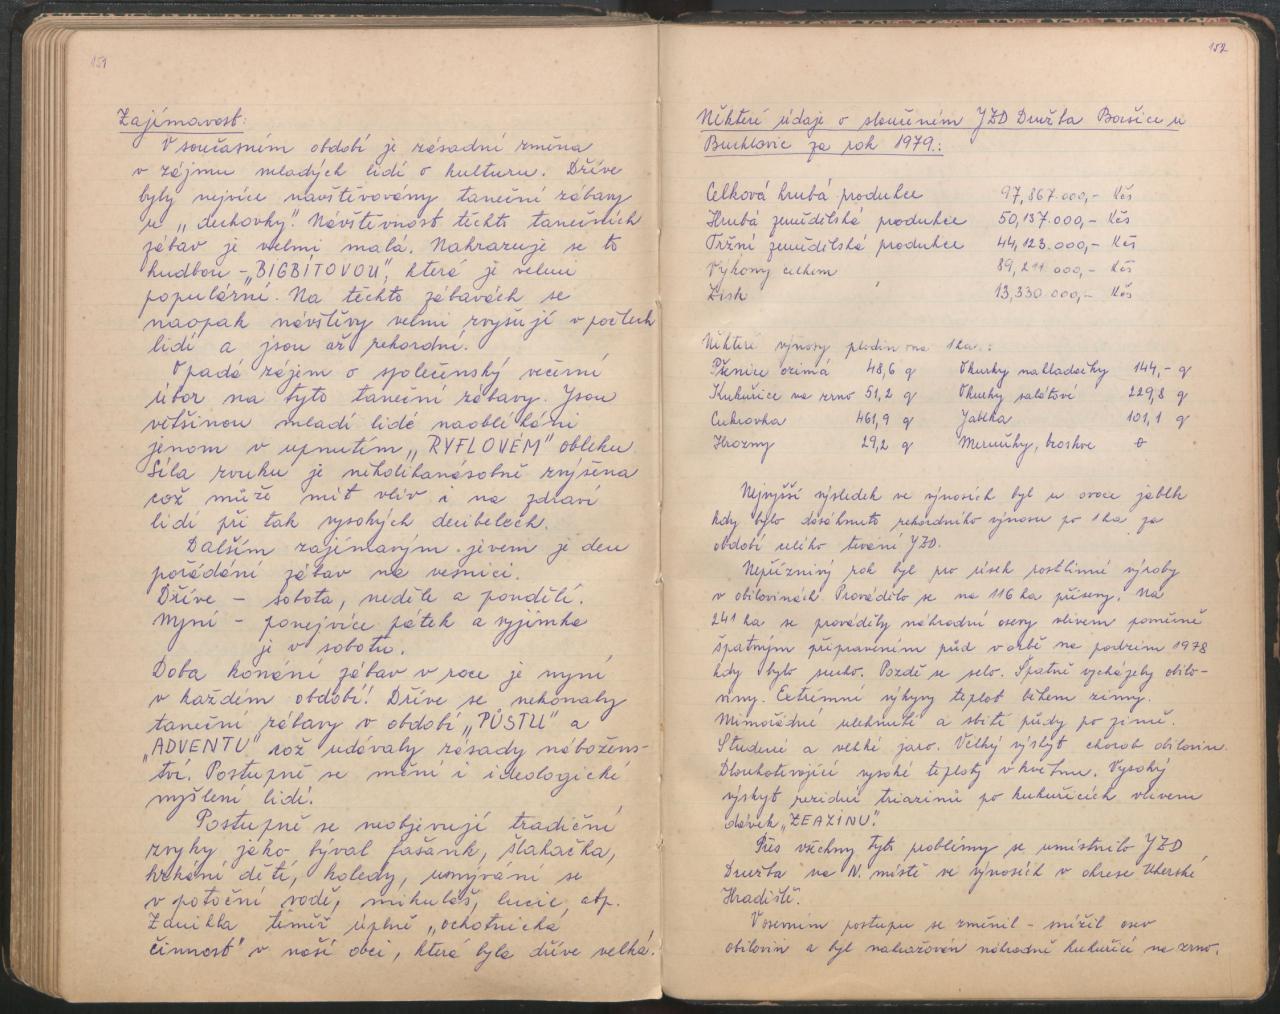 151
Zajímavost:
V současném období je zásadní změna
v zájmu mladých lidí o kulturu. Dříve
byly nejvíce navštěvovány taneční zábavy
u „dechovky". Návštěvnost těchto tanečních
zábav je velmi malá. Nahrazuje se to
hudbou - „BIGBÍTOVOU", která je velmi
populární. Na těchto zábavách se
naopak návštěvy velmi zvyšují v počtech
lidí a jsou až rekordní.
Upadá zájem o společenský večerní
úbor na tyto taneční zábavy. Jsou
většinou mladí lidé naoblékáni
jenom v upnutím „RYFLOVÉM" obleku.
Síla zvuku je několikanásobně zvýšena
což může mít vliv i na zdraví
lidí při tak vysokých decibelech.
Dalším zajímavým jevem je den
pořádání zábav na vesnici.
Dříve - sobota, neděle a pondělí.
Nyní - ponejvíce pátek a vyjímka
je v sobotu.
Doba konání zábav v roce je nyní
v každém období! Dříve se nekonaly
taneční zábavy v období „PŮSTU" a
„ADVENTU" což udávaly zásady nábožens-
tví. Postupně se mění i ideologické
myšlení lidí.
Postupně se neobjevují tradiční
zvyky jako býval fašank, šlahačka,
hrkání dětí, koledy, umývání se
v potoční vodě, mikuláš, lucie, atp.
Zanikla téměř úplně „ochotnická
činnost" v naší obci, která byla dříve velká.
152
Některé údaje o sloučeném JZD Družba Boršice u
Buchlovic za rok 1979.:
Celková hrubá produkce 97,867.000,- Kčs
Hrubá zemědělská produkce 50,137.000,- Kčs
Tržní zemědělská produkce 44,123.000,- Kčs
Výkony celkem 89,211.000,- Kčs
Zisk 13,330.000,- Kčs
Některé výnosy plodin na 1 ha.:
Pšenice ozimá 48,6 q Okurky nakladačky 144,- q
Kukuřice na zrno 51,2 q Okurky salátové 229,8 q
Cukrovka 461,9 q Jablka 101,1 q
Hrozny 29,2 q Meruňky, broskve 0
Nejvyšší výsledek ve výnosích byl u ovoce jablk
kdy bylo dosáhnuto rekordního výnosu po 1 ha za
období celého trvání JZD.
Nepříznivý rok byl pro úsek rostlinné výroby
v obilovinách. Provádělo se na 116 ha přísevy. Na
241 ha se prováděly náhradní osevy vlivem poměrně
špatným připravením půd v orbě na podzim 1978
kdy bylo sucho. Pozdě se selo. Špatně vycházely obilo-
viny. Extrémní výkyvy teplot během zimy.
Mimořádné ulehnutí a sbití půdy po zimě.
Studené a vlhké jaro. Velký výskyt chorob obilovin.
Dlouhotrvající vysoké teploty v květnu. Vysoký
výskyt reziduí triazinů po kukuřicích vlivem
dávek „ZEAZINU".
Přes všechny tyto problémy se umístnilo JZD
Družba na IV. místě ve výnosích v okrese Uherské
Hradiště.
V osevním postupu se změnil - snížil osev
obilovin a byl nahrazován náhradně kukuřicí na zrno.